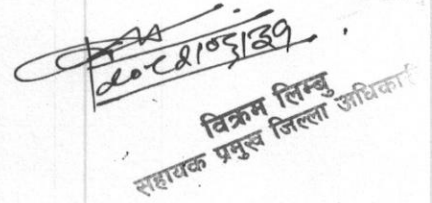 २०८१०८।३१
विक्रम लिम्बु
सहायक प्रमुख जिल्ला अधिकारी